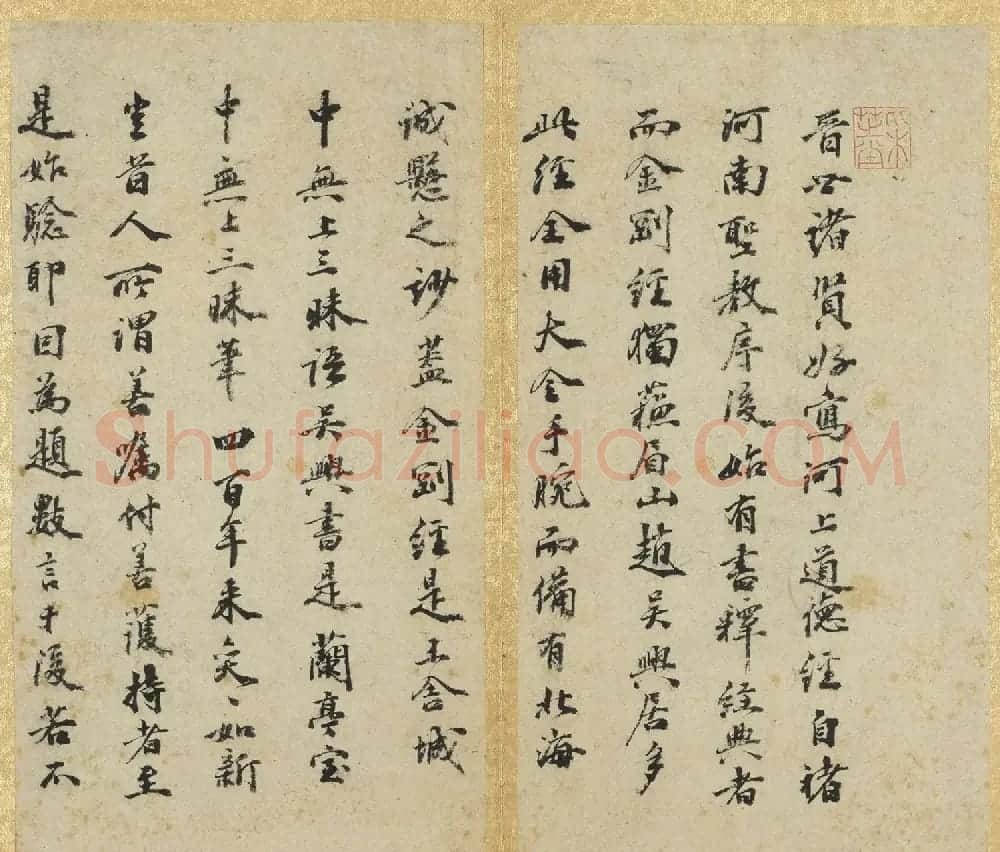 晉世諸賢好寫河上道德經自褚
河南聖教序後始有書釋經典者
而金剛經獨蘇眉山趙吳興居多
此經全用大令手腕而備有北海
誠懸之妙蓋金剛經是王舍城
中無上三昧語吳興書是蘭亭室
中無上三昧筆四百年來奕〻如新
坐昔人所謂善囑付善護持者至
是始驗耶因為題數言于後若不
Shufaziliao.COM